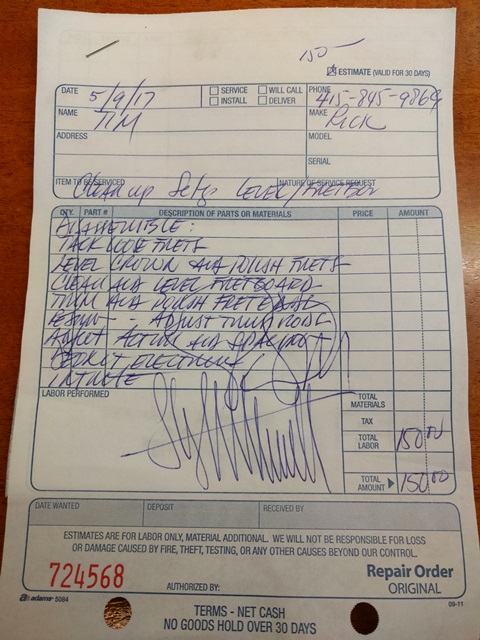 150-
☑ ESTIMATE (VALID FOR 30 DAYS)
DATE 5/9/17 ☐ SERVICE ☐ WILL CALL ☐ INSTALL ☐ DELIVER PHONE 415-845-9864
NAME TIM MAKE RICK
ADDRESS MODEL
SERIAL
ITEM TO BE SERVICED NATURE OF SERVICE REQUEST
CLEAN UP SETUP LEVEL/
QTY. PART # DESCRIPTION OF PARTS OR MATERIALS PRICE AMOUNT
TACK LOOSE FRETS
LEVEL CROWN AND POLISH FRETS
CLEAN AND LEVEL FRETBOARD
TRIM AND POLISH
- ADJUST TRUSS RODS
ADJUST ACTION AND
ELECTRONICS
INTONATE
LABOR PERFORMED
TOTAL MATERIALS
TAX
TOTAL LABOR 150.00
TOTAL AMOUNT ▶ 150.00
DATE WANTED DEPOSIT RECEIVED BY
ESTIMATES ARE FOR LABOR ONLY, MATERIAL ADDITIONAL. WE WILL NOT BE RESPONSIBLE FOR LOSS
OR DAMAGE CAUSED BY FIRE, THEFT, TESTING, OR ANY OTHER CAUSES BEYOND OUR CONTROL.
724568 AUTHORIZED BY: Repair Order
ORIGINAL
adams 5084 09-11
TERMS - NET CASH
NO GOODS HOLD OVER 30 DAYS